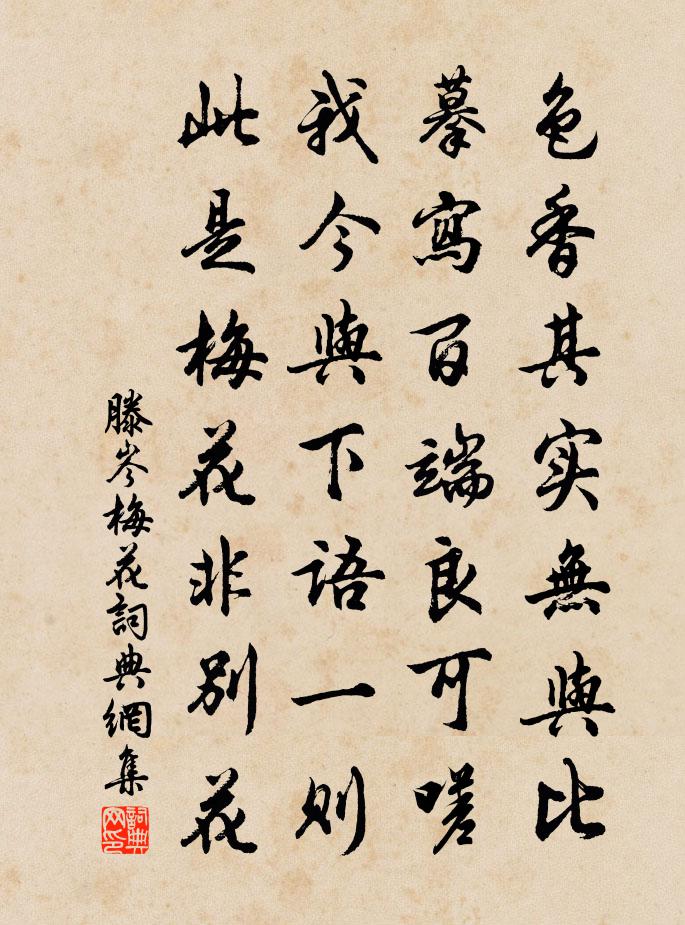 色香其实無與比
摹寫百端良可嗟
我今與下語一則
此是梅花非別花
滕岑梅花詞典網集
詞典网印